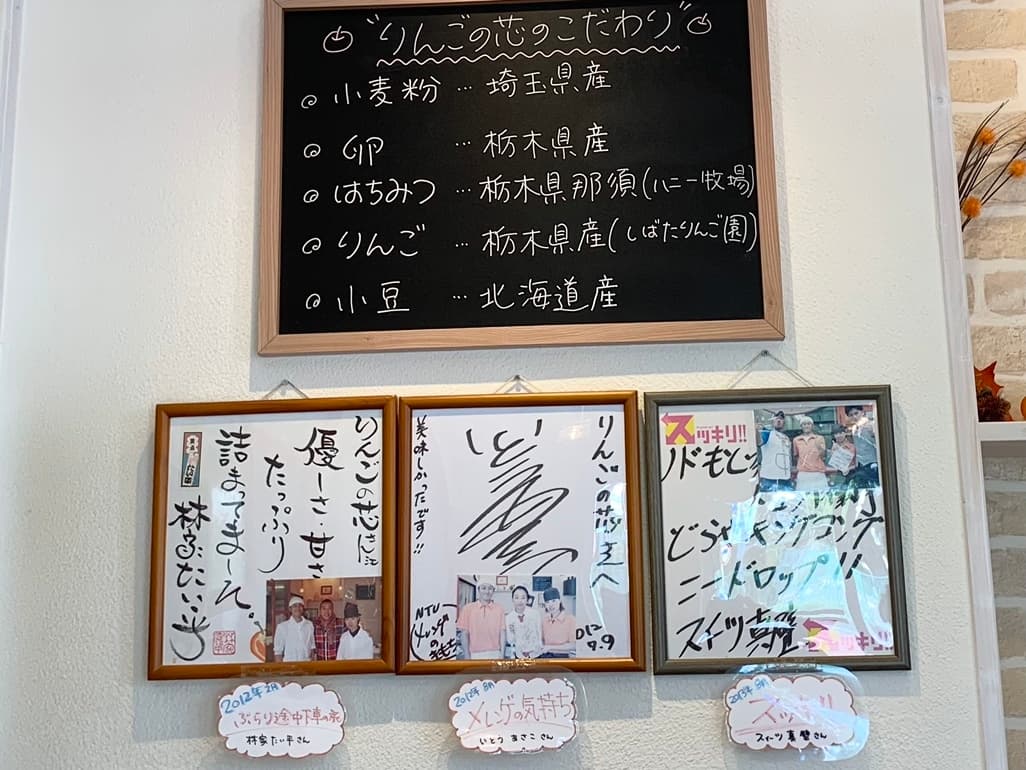 "りんごの芯のこだわり"
小麦粉 … 埼玉県産
卵 … 栃木県産
はちみつ … 栃木県那須(ハニー牧場)
りんご … 栃木県産(しばたりんご園)
小豆 … 北海道産
りんごの芯さん江
優しさ・甘さ
たっぷり
詰まってまーす。
林家たい平
りんごの芯さんへ
いとう
美味しかったです!!
NTV
の気もち
012
7.9
スッキリ!!
ノドもと
どら キングコング
ニードロップ!!
スイーツ真壁
スッキリ!!
2012年2月
ぶらり途中下車の旅
林家たい平さん
2012年8月
メレンゲの気持ち
いとう まさこさん
2013年
スッキリ
スイーツ真壁さん